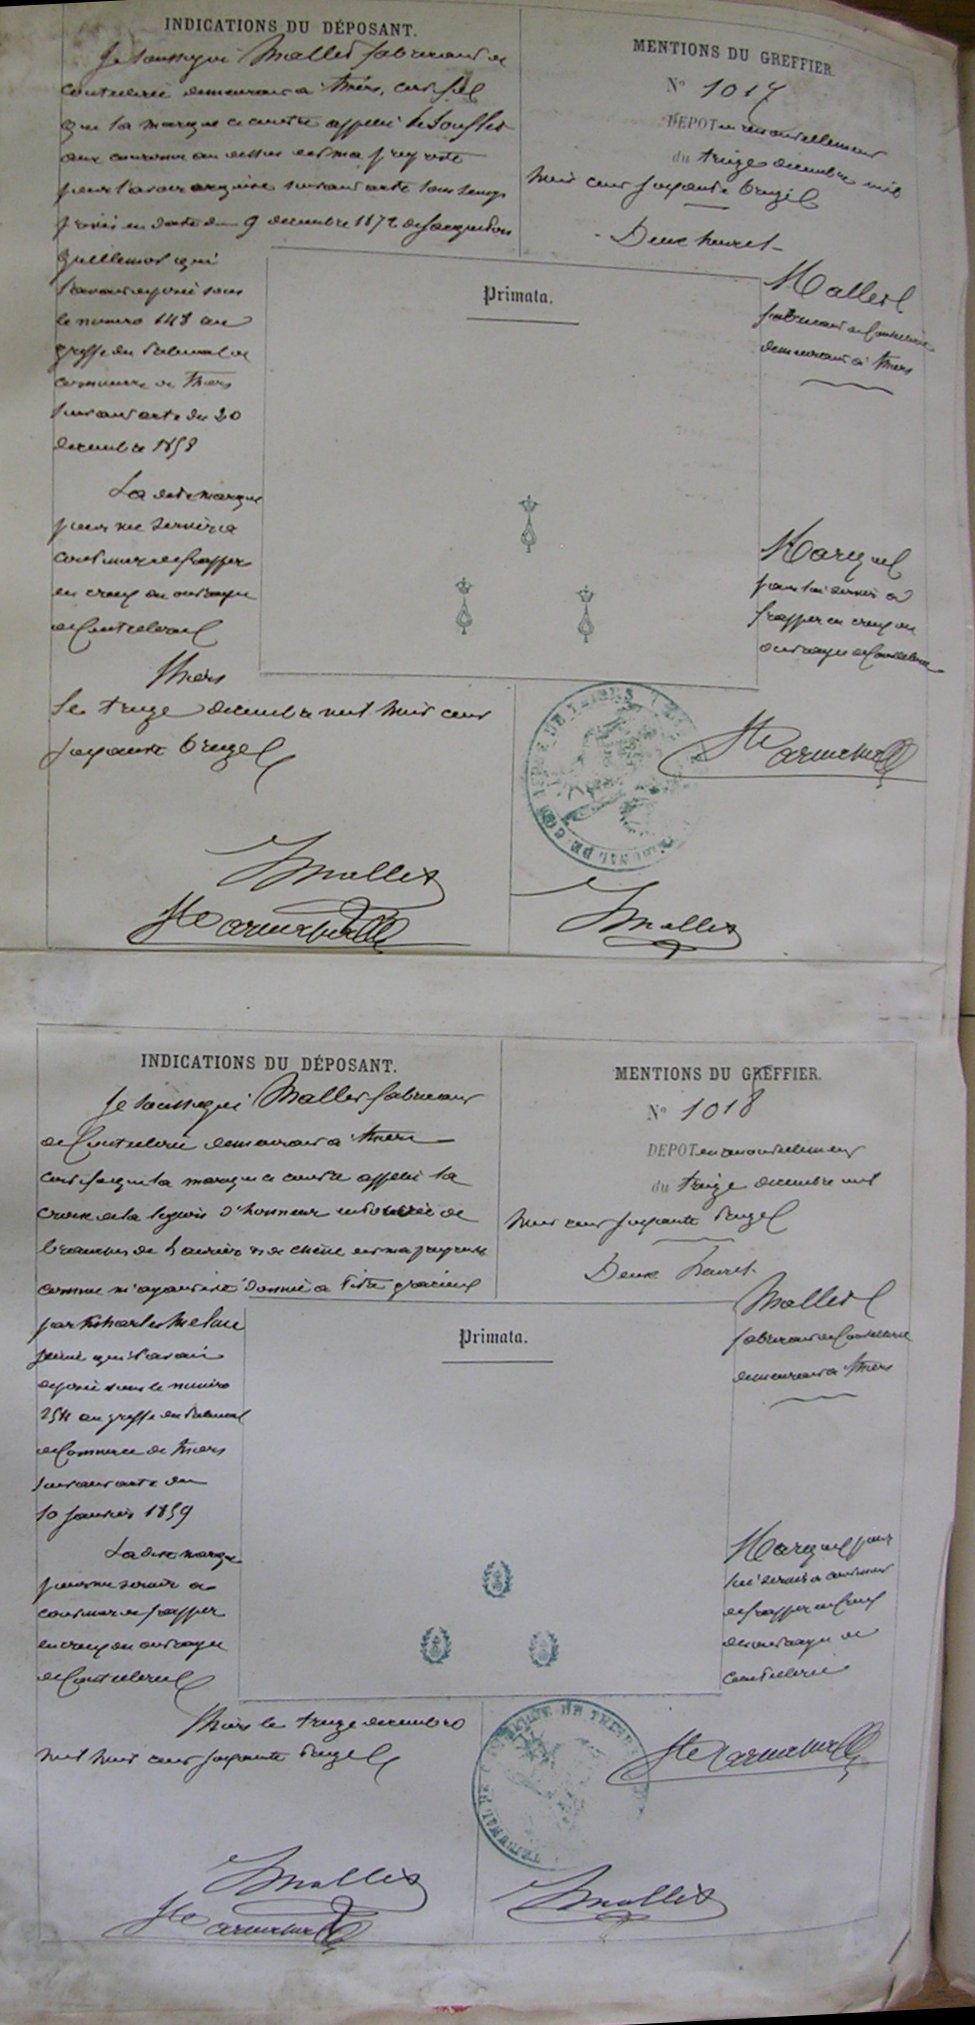 INDICATIONS DU DÉPOSANT.
Je soussigné Mallet fabricant de
coutellerie demeurant à Thiers, certifie
que la marque ci contre appelée le Soufflet
aux couronne au dessus est ma propriété
pour l'avoir acquise suivant acte sous seings
privés en date du 9 decembre 1872 de Jacquedon
Guillemot qui
l'avait déposé sous
le numéro 148 au
greffe du Tribunal de
commerce de Thiers
suivant acte du 20
decembre 1858
La dite marque
pour me servir a
continuer de frapper
en creux mes ouvrages
de Coutellerie
Thiers
le treize decembre mil huit cent
soixante treize
Mallet
MENTIONS DU GREFFIER.
N° 1017
DEPOT en renouvellement
du treize decembre mil
huit cent soixante treize
Deux heures
Mallet
fabricant de Coutellerie
demeurant à Thiers
Primata.
Marque
pour lui servir à
frapper en creux ses
ouvrages de Coutellerie
TRIBUNAL DE COMMERCE DE THIERS
Mallet
INDICATIONS DU DÉPOSANT.
Je soussigné Mallet fabricant
de Coutellerie demeurant à Thiers
certifie que la marque ci contre appelée la
croix de la legion d'honneur entourée de
branches de Laurier et de chêne est ma propriété
comme m'ayant été donnée a titre gracieux
par Charles
jeune qui l'avait
déposé sous le numéro
254 au greffe du Tribunal
de Commerce de Thiers
suivant acte du
10 Janvier 1859
La dite marque
pour me servir a
continuer de frapper
en creux mes ouvrages
de Coutellerie
Thiers le treize decembre
mil huit cent soixante treize
Mallet
MENTIONS DU GREFFIER.
N° 1018
DEPOT en renouvellement
du treize decembre mil
huit cent soixante treize
Deux heures
Mallet
fabricant de Coutellerie
demeurant à Thiers
Primata.
Marque pour
lui servir a continuer
de frapper en creux
ses ouvrages de
coutellerie
TRIBUNAL DE COMMERCE DE THIERS
Mallet